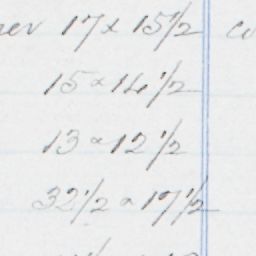 17 x 15 1/2
15 x 14 1/2
13 x 12 1/2
32 1/2 x 17 1/2